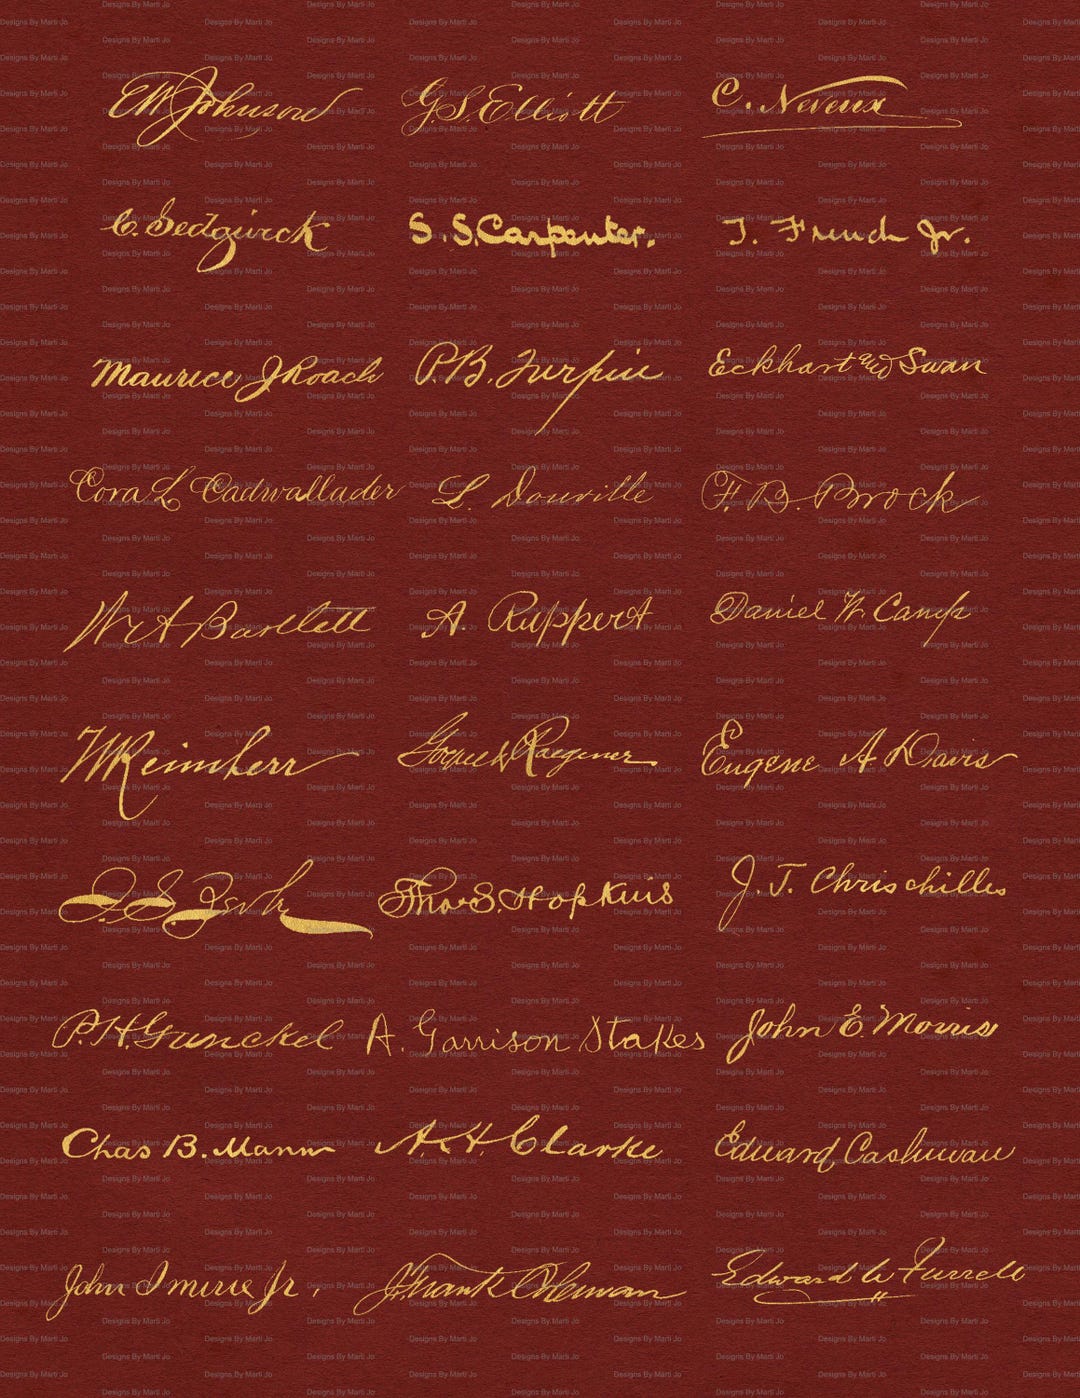 EW Johnson G.S. Elliott C. Neveux
C. Sedgwick S.S. Carpenter. T. French Jr.
Maurice J Roach P.B. Turpin Eckhart and Swan
Cora L Cadwallader L. Douville F. B. Brock
W A Bartlett A. Ruppert Daniel W. Camp
Reimherr Raegener Eugene A. Davis
Thos S. Hopkins J. T. Chrischilles
P. H. Gunckel A. Garrison Stakes John E. Morris
Chas B. Mann A. H. Clarke Edward Cashman
John Imirie Jr. Frank Edward W Furrell
Designs By Marti Jo